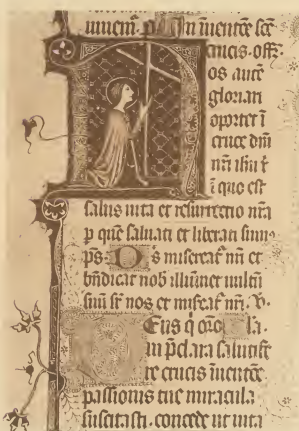 iuuem. p̄. In inuentōe sc̄e
crucis. offī.
os autē
gloriari
oportet ī
cruce dn̄i
nr̄i ih̄u x̄
ī quo est
salus uita et resurrectio nr̄a
p quē saluati et liberati sum⁹
ps. Ds misereat̄ nr̄i et
bn̄dicat nob̄ illūinet uultū
suū sr̄ nos et miseat̄ nr̄i. V.
Deus q̇ ... la.
in p̄clara salutife
re crucis īuentōe
passionis tue miracula
suscitasti. concede ut uita